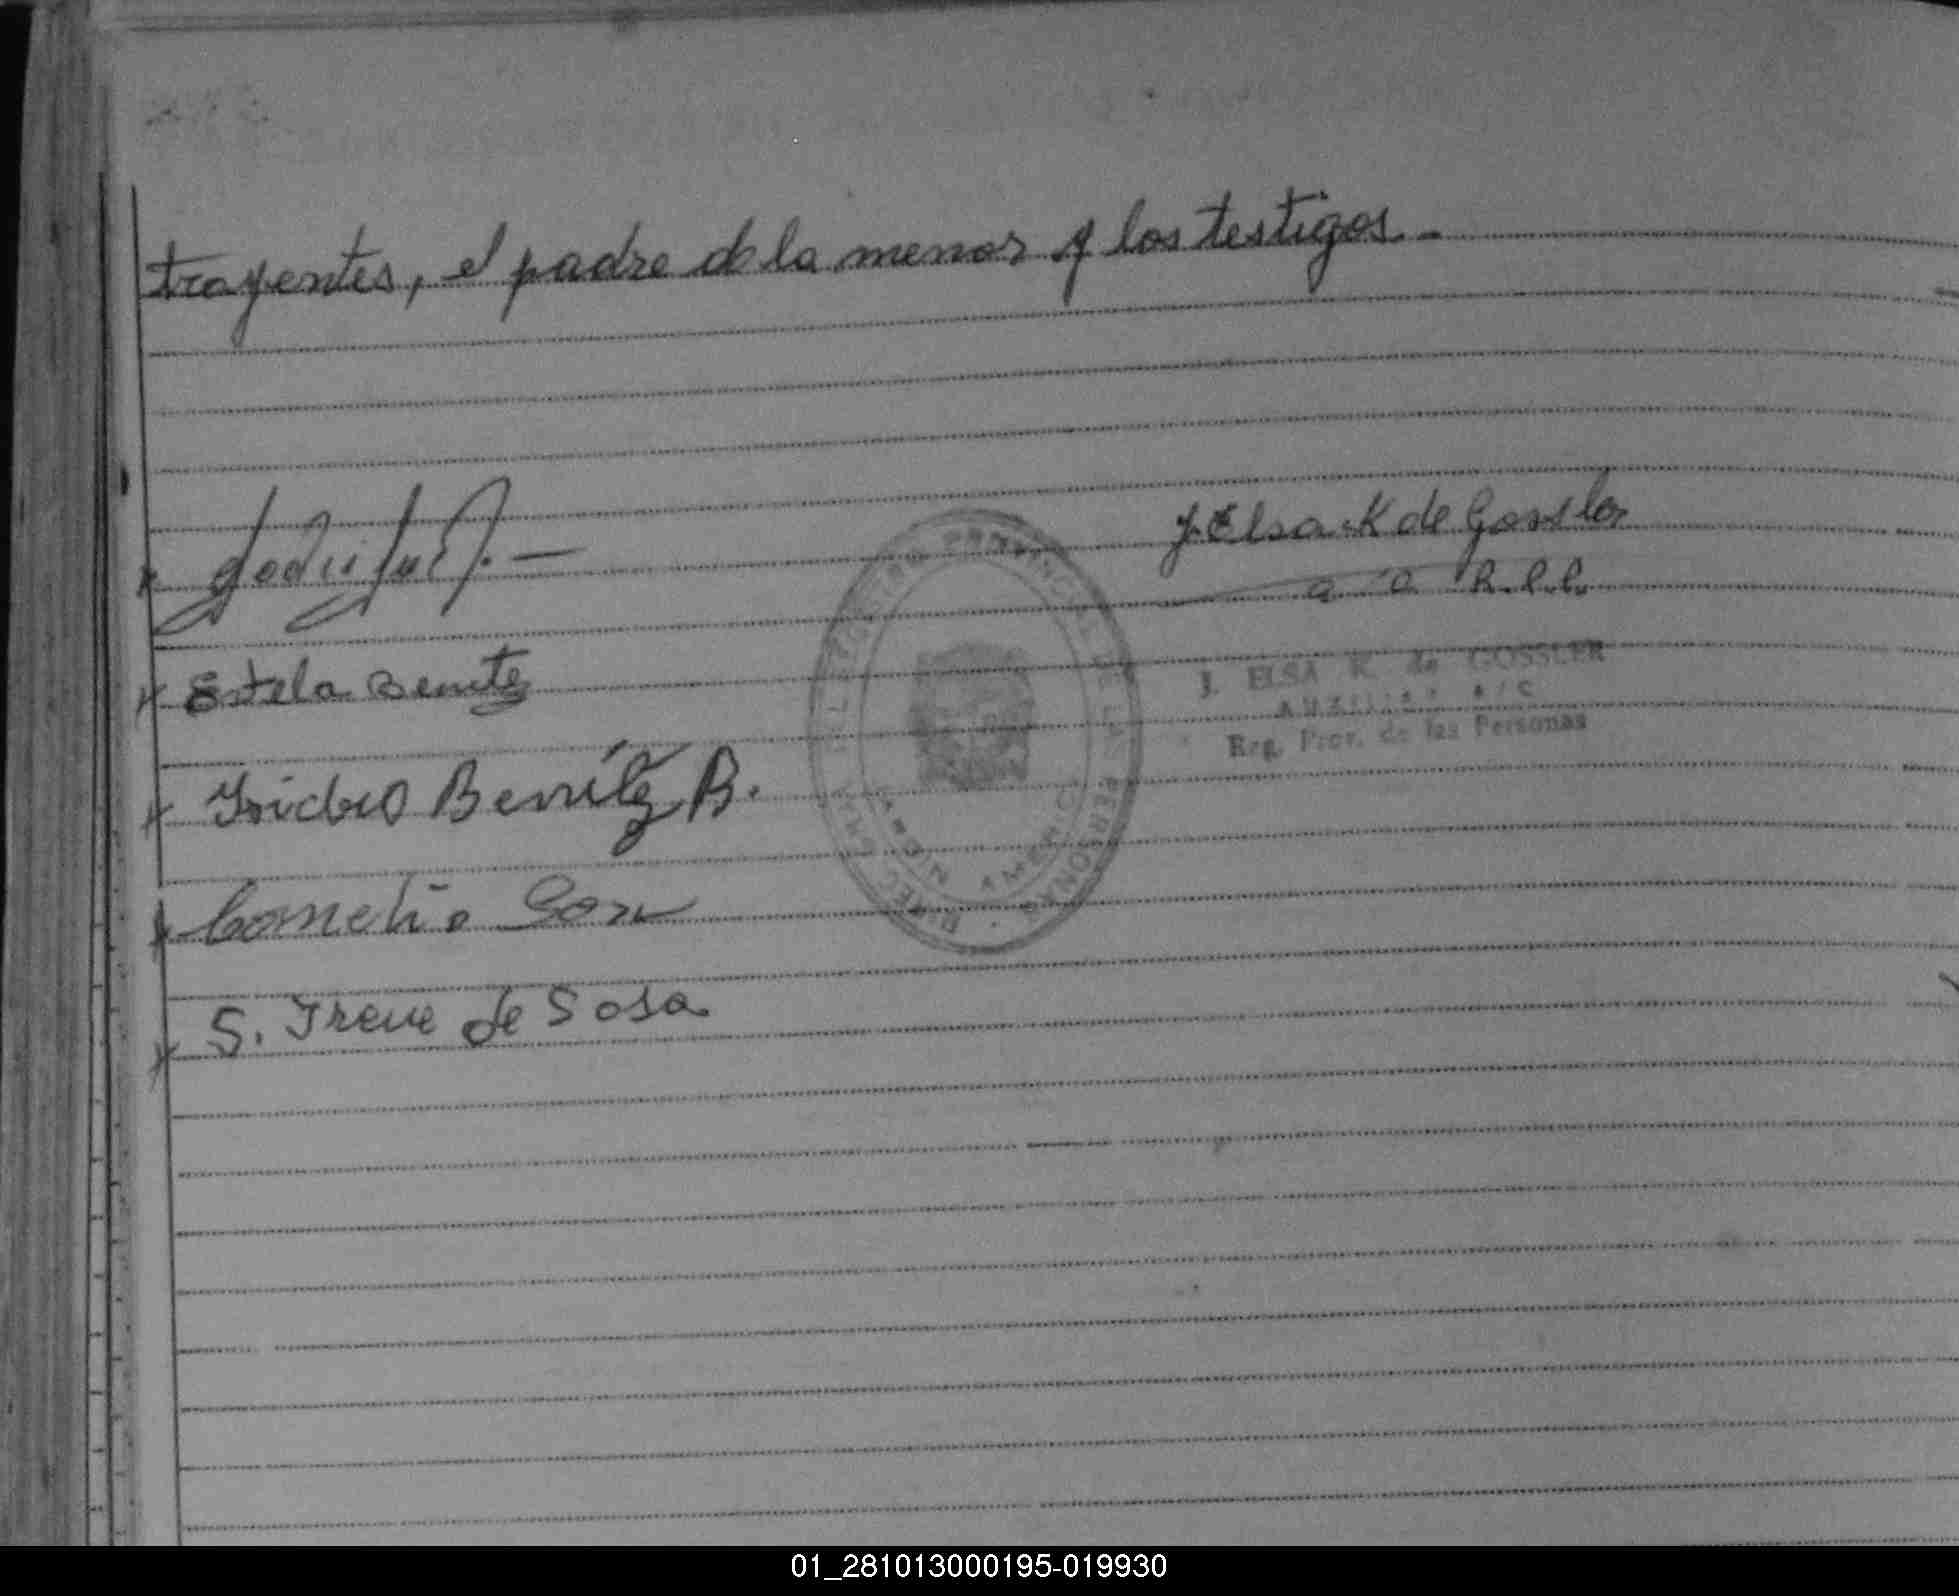 trayentes, el padre de la menor y los testigos.-
J. Elsa K de Gossler
a/c R.C.C.
J. ELSA K. de GOSSLER
AUXILIAR A/C
Reg. Prov. de las Personas
Estela Benitez
Isidro Benítez B.
Cornelio Sosa
S. Irene de Sosa
REGISTRO PROVINCIAL DE LAS PERSONAS
01_281013000195-019930